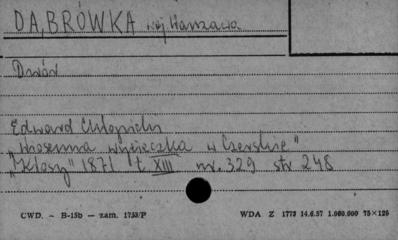 DĄBRÓWKA woj. Warszawa
Dwór
Edward Chłopicki
„Wiosenna wycieczka w Czerskie"
„Kłosy" 1871 t XIII nr. 329 str 248
CWD. – B-15b – zam. 1753/P WDA Z 1773 14.6.57 1.000.000 75×125